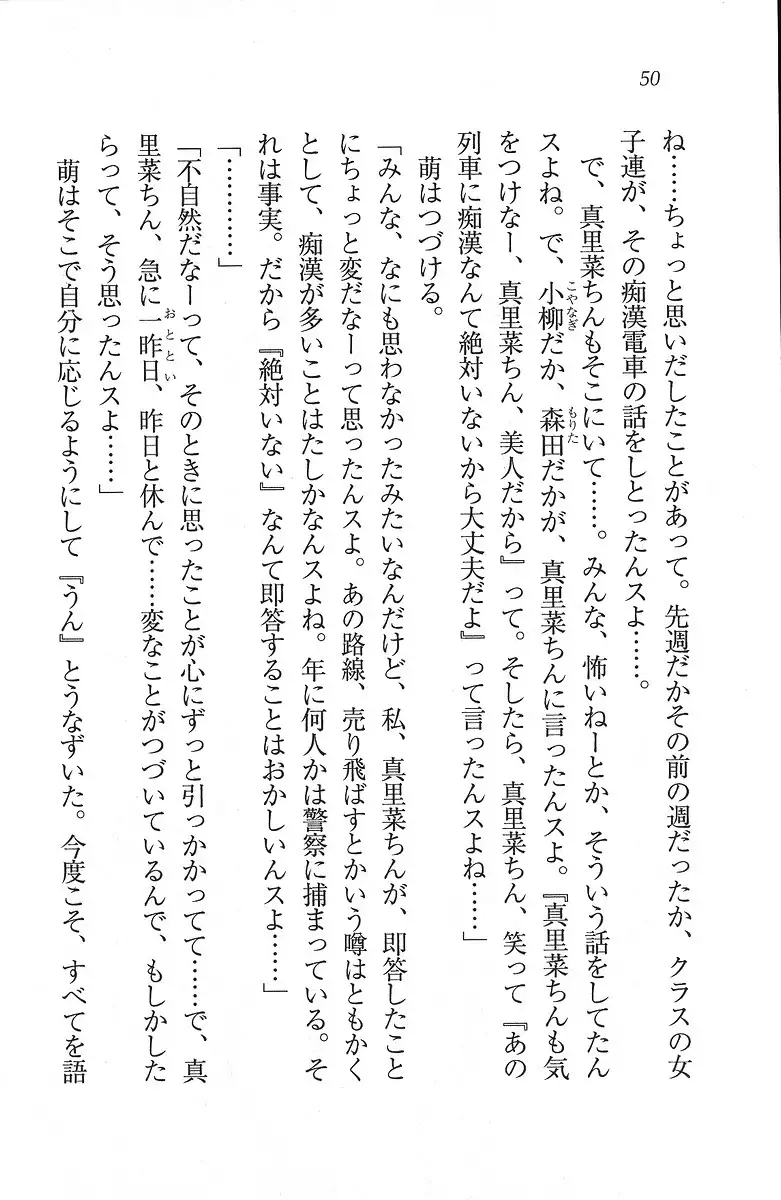 50
ね……ちょっと思いだしたことがあって。先週だかその前の週だったか、クラスの女
子連が、その痴漢電車の話をしとったんスよ……。
で、真里菜ちんもそこにいて……。みんな、怖いねーとか、そういう話をしてたん
スよね。で、小柳だか、森田だかが、真里菜ちんに言ったんスよ。『真里菜ちんも気
こやなぎ
もりた
をつけなー、真里菜ちん、美人だから』って。そしたら、真里菜ちん、笑って『あの
列車に痴漢なんて絶対いないから大丈夫だよ』って言ったんスよね……」
萌はつづける。
「みんな、なにも思わなかったみたいなんだけど、私、真里菜ちんが、即答したこと
にちょっと変だなーって思ったんスよ。あの路線、売り飛ばすとかいう噂はともかく
として、痴漢が多いことはたしかなんスよね。年に何人かは警察に捕まっている。そ
れは事実。だから『絶対いない』なんて即答することはおかしいんスよ……」
「…………」
「不自然だなーって、そのときに思ったことが心にずっと引っかかってて……で、真
里菜ちん、急に一昨日、昨日と休んで……変なことがつづいているんで、もしかした
おととい
らって、そう思ったんスよ……」
萌はそこで自分に応じるようにして『うん』とうなずいた。今度こそ、すべてを語